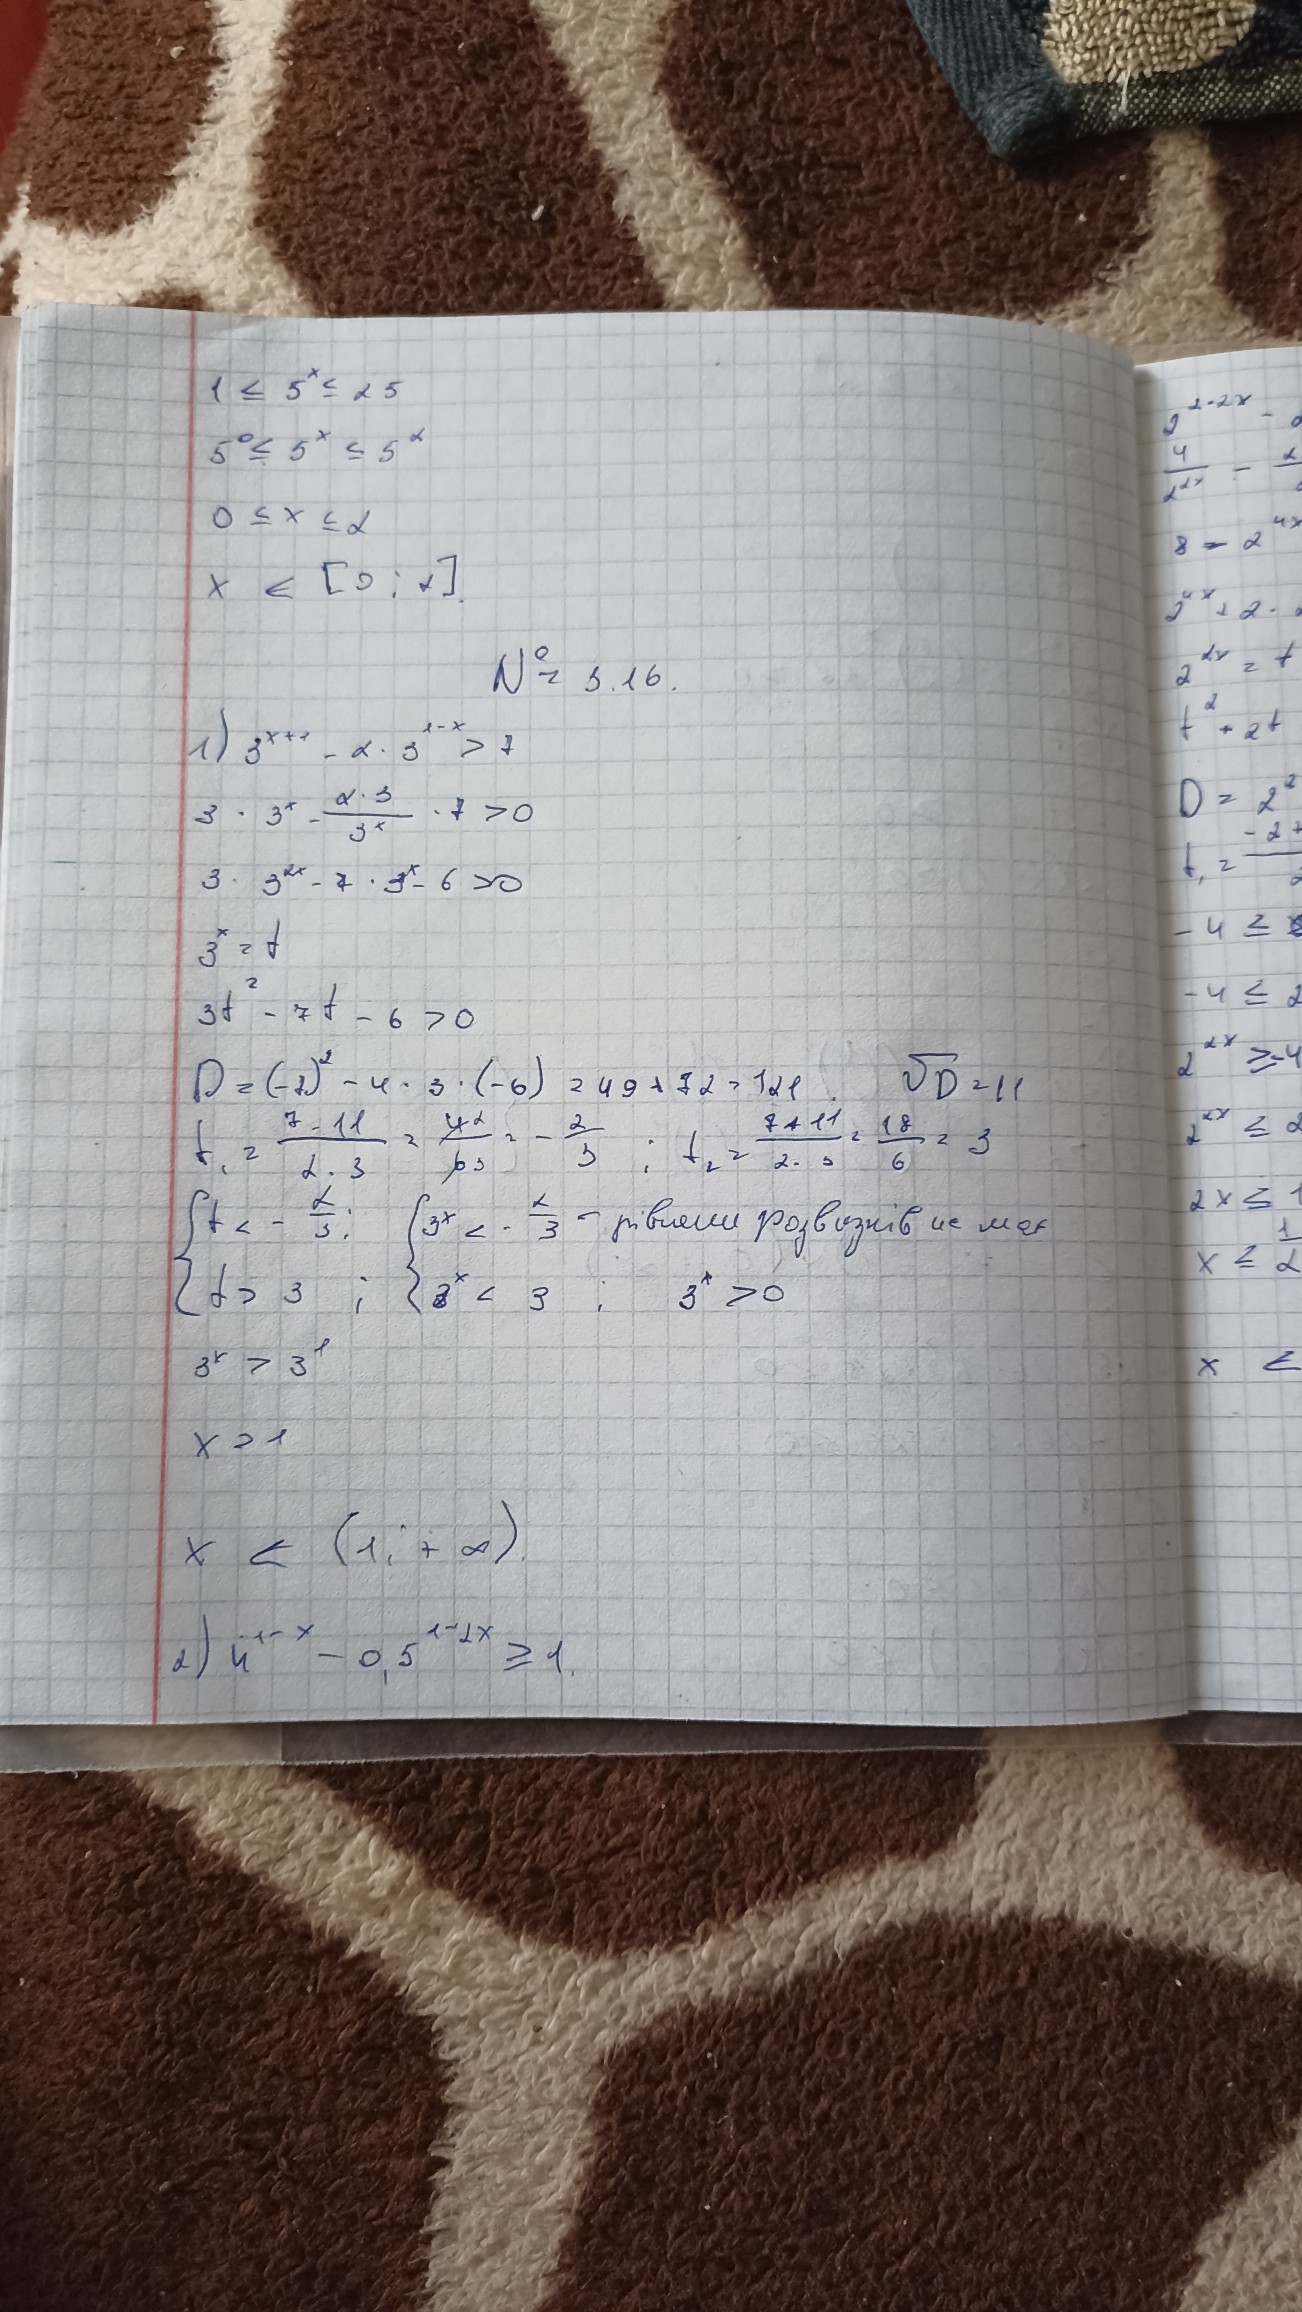 1 ≤ 5^x ≤ 25
5^0 ≤ 5^x ≤ 5^2
0 ≤ x ≤ 2
x ∈ [0; 2].
№ 3.16.
1) 3^{x+1} - 2 · 3^{1-x} > 7
3 · 3^x - \frac{2·3}{3^x} · 7 > 0
3 · 3^{2x} - 7 · 3^x - 6 > 0
3^x = t
3t^2 - 7t - 6 > 0
D = (-7)^2 - 4 · 3 · (-6) = 49 + 72 = 121. √D = 11
t_1 = \frac{7-11}{2·3} = = -\frac{2}{3} ; t_2 = \frac{7+11}{2·3} = \frac{18}{6} = 3
{ t < -\frac{2}{3}; { 3^x < -\frac{2}{3} - розвязків не має
t > 3 ; 3^x < 3 ; 3^x > 0
3^x > 3^1
x > 1
x ∈ (1; +∞).
2) 4^{1-x} - 0,5^{1-2x} ≥ 1.
2^{2-2x} -
\frac{4}{2^{2x}} -
8 - 2^{4x}
2^{4x} + 2 ·
2^{2x} = t
t^2 + 2t
D = 2^2
t_1 = -2+
-4 ≤
-4 ≤ 2
2^{2x} ≥ -4
2^{2x} ≤ 2
2x ≤ 1
x ≤ \frac{1}{2}
x ∈